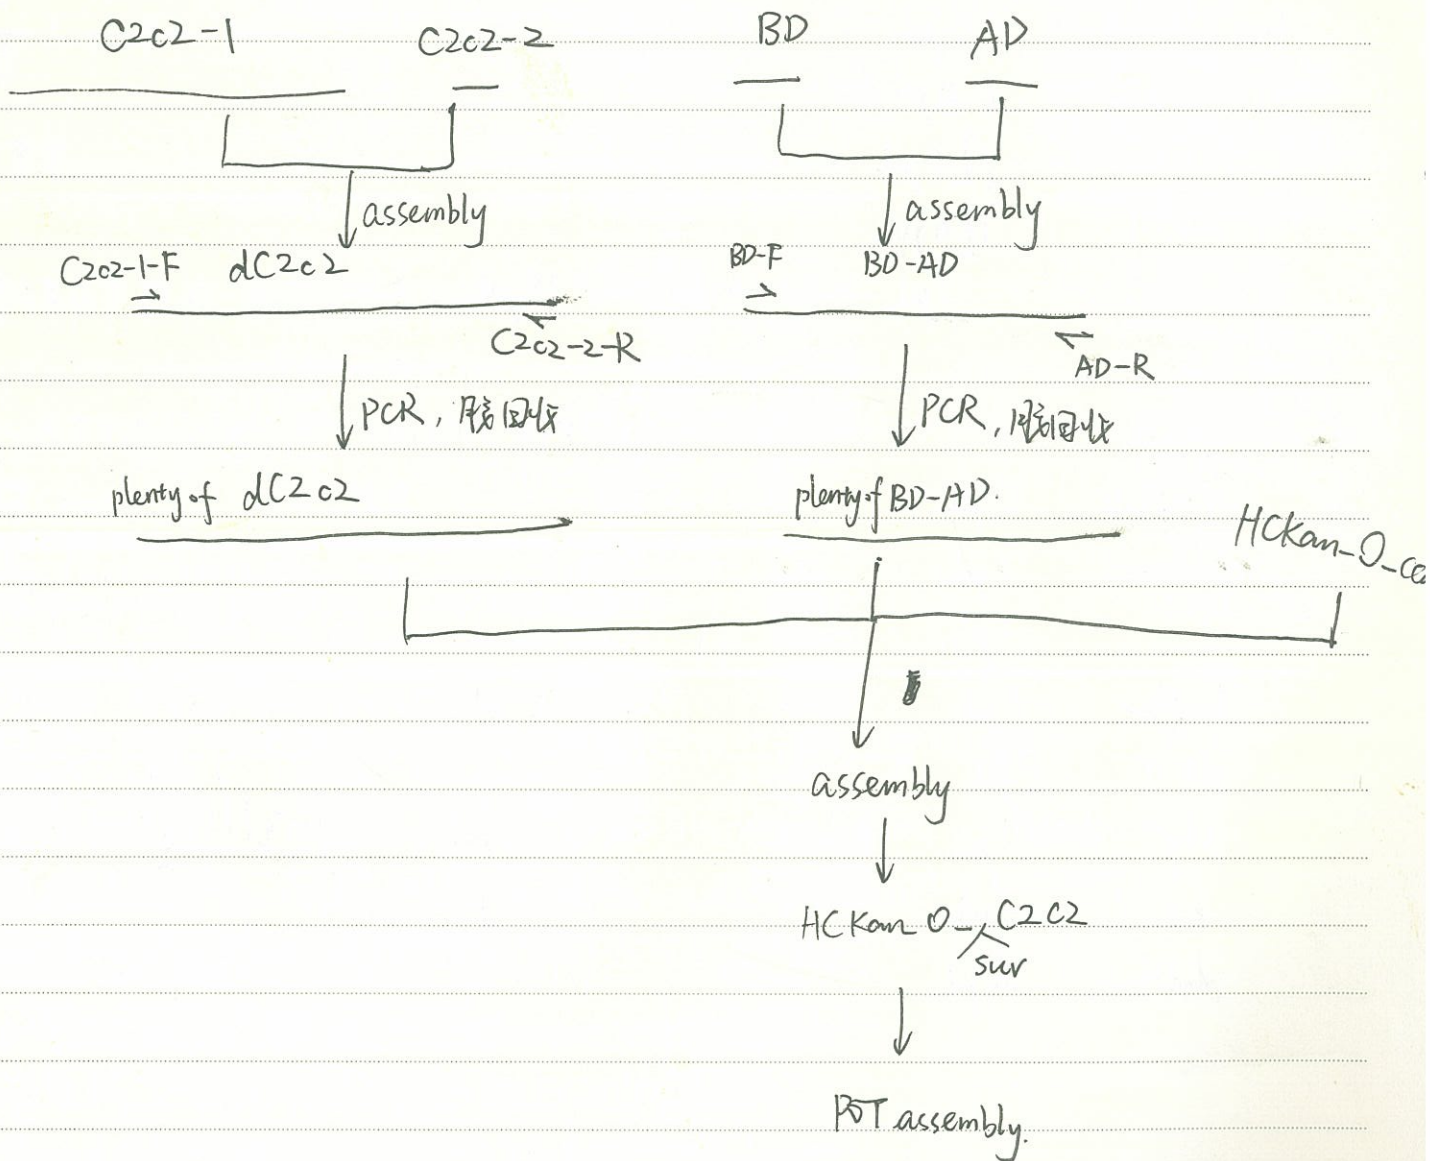 C2c2-1 C2c2-2 BD AD
assembly assembly
C2c2-1-F dC2c2 BD-F BD-AD
C2c2-2-R AD-R
PCR, 胶回收 PCR, 胶回收
plenty of dC2c2 plenty of BD-AD.
HCKan_O_
assembly
HCKan_O_C2C2
sur
POT assembly.